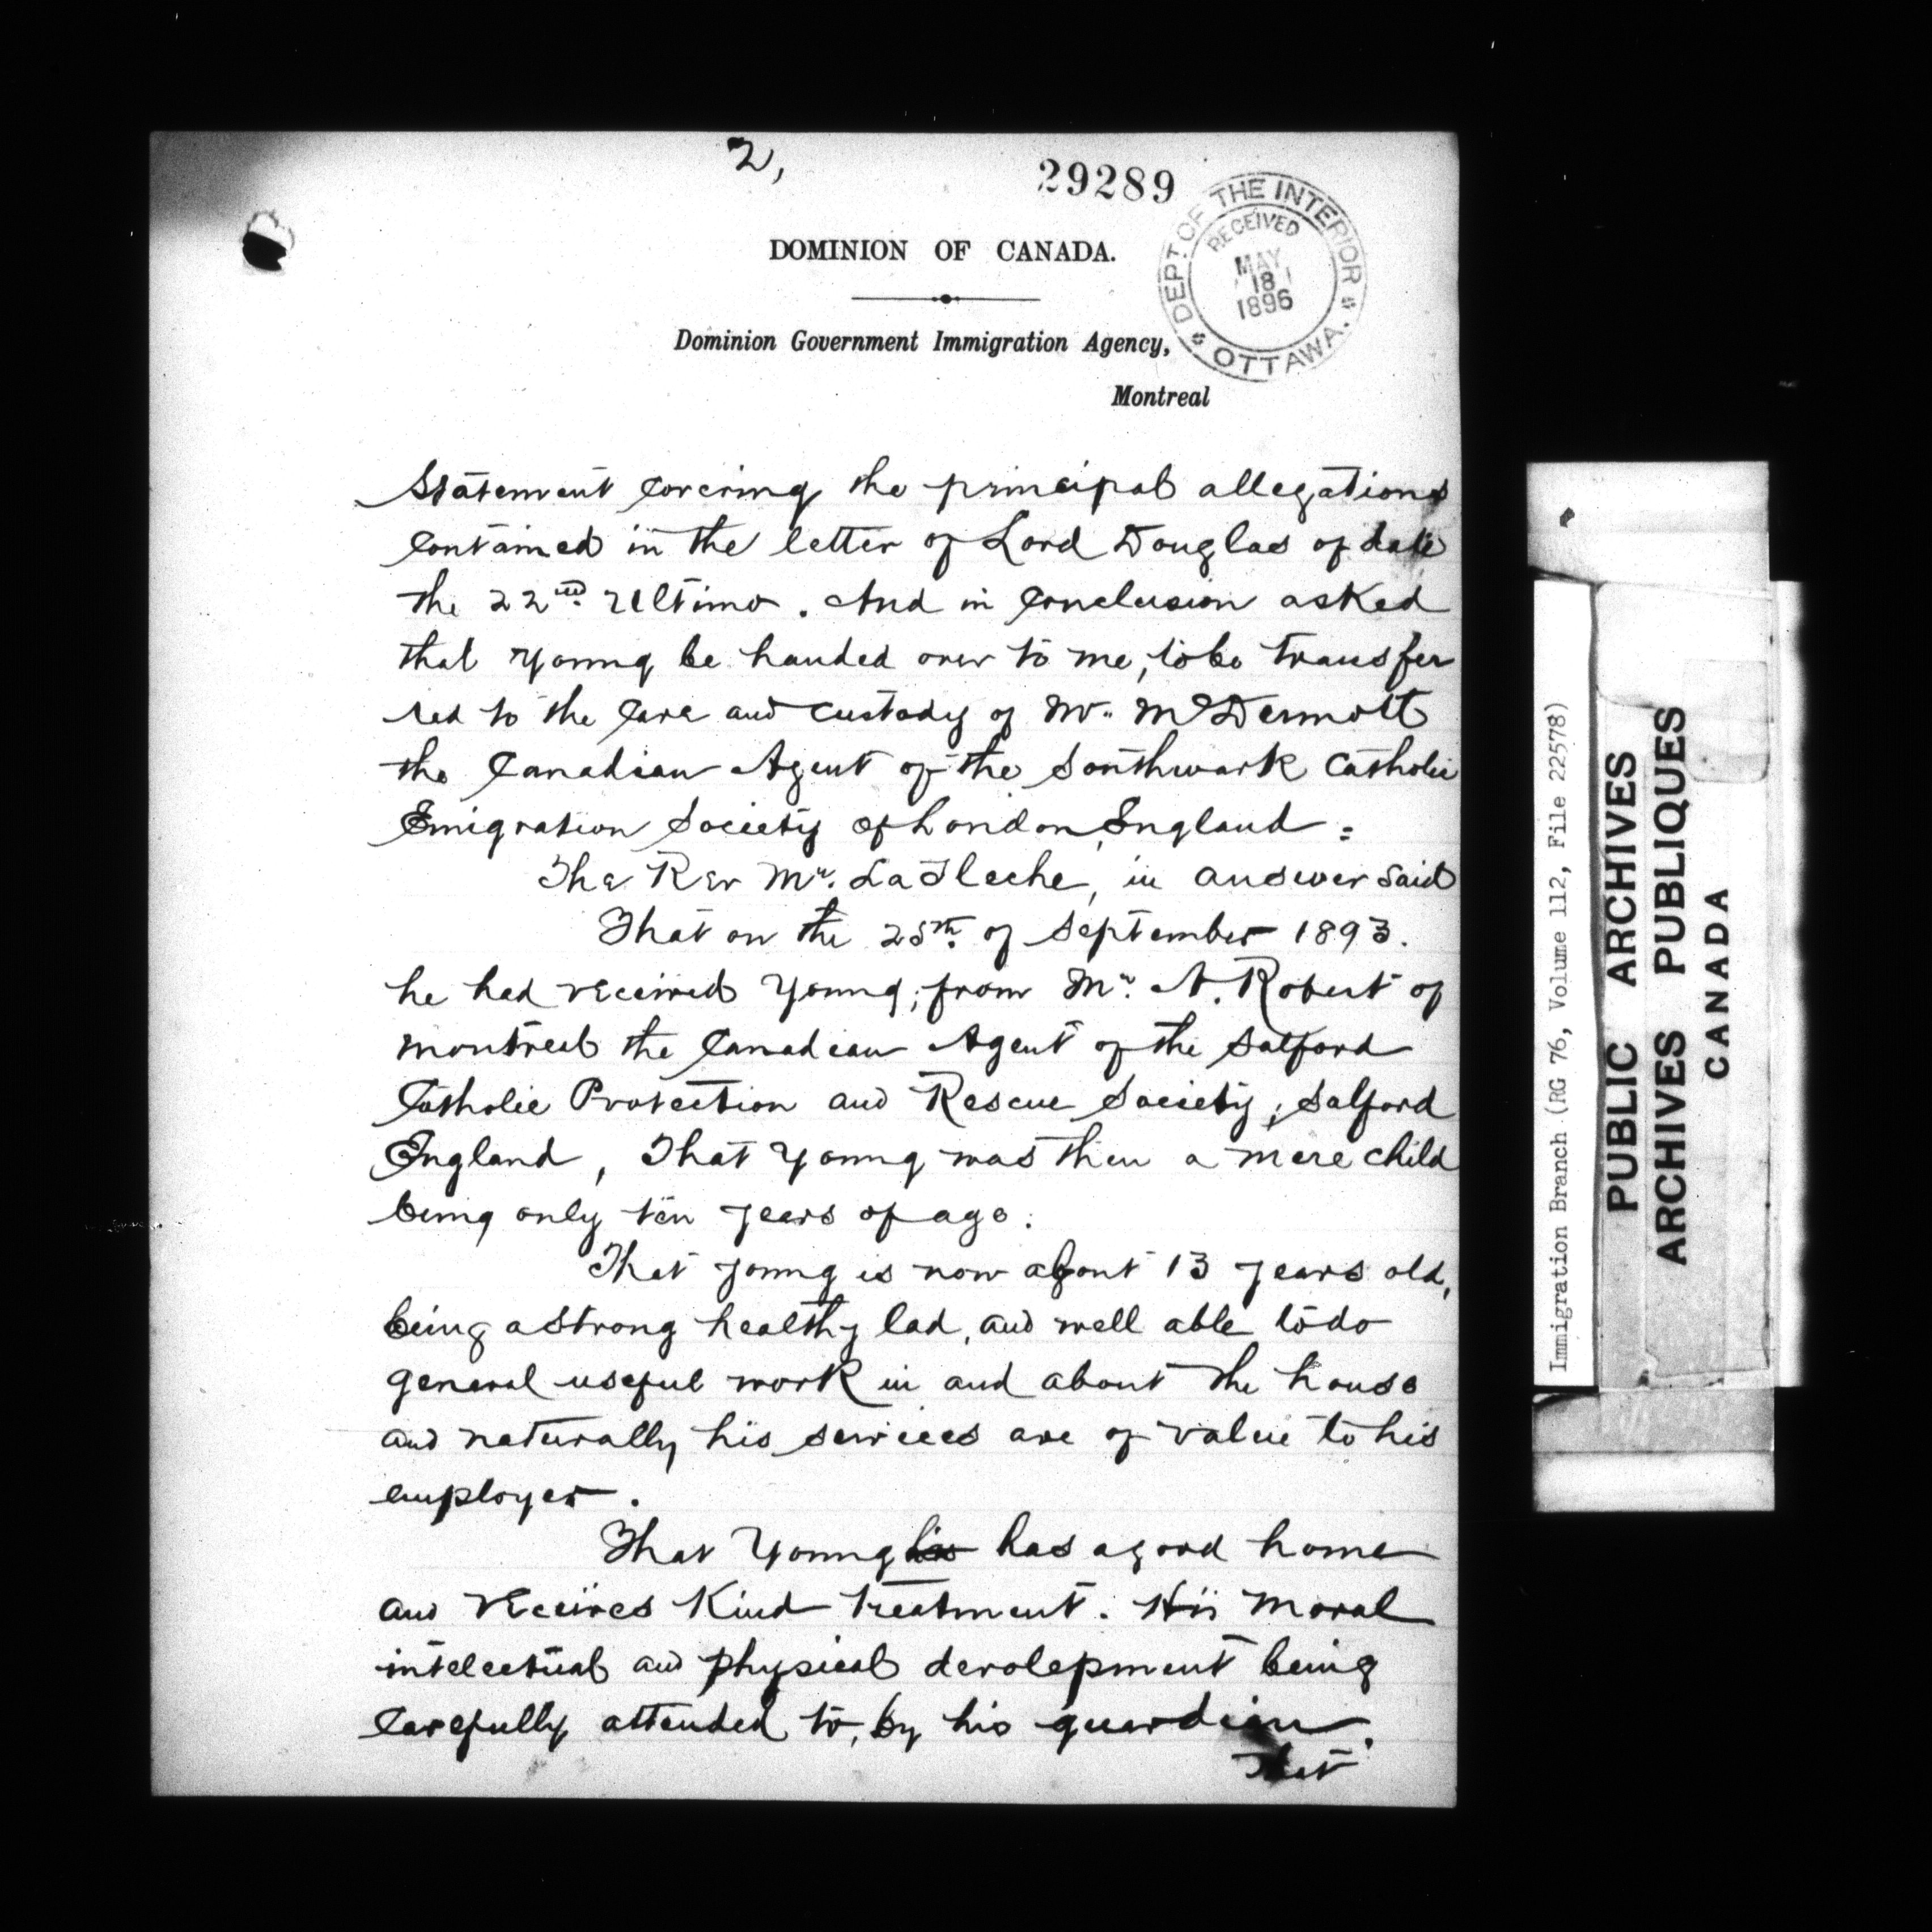 2,
29289
DEPT. OF THE INTERIOR
RECEIVED
MAY
18
1896
OTTAWA.
DOMINION OF CANADA.
Dominion Government Immigration Agency,
Montreal
Statement Covering the principal allegations
Contained in the letter of Lord Douglas of date
the 22nd Ultimo. And in Conclusion asked
that Young be handed over to me, to be transfer
red to the Care and Custody of Mr. McDermott
the Canadian Agent of the Southwark Catholic
Emigration Society of London, England =
The Rev Mr. LaFleche, in answer said
That on the 25th. of September 1893.
he had received Young; from Mr. A. Robert of
Montreal the Canadian Agent of the Salford
Catholic Protection and Rescue Society; Salford
England, That Young was then a mere child
being only ten years of age.
That young is now about 13 years old,
being a strong healthy lad, and well able to do
general useful work in and about the house
and naturally his services are of value to his
employer.
That Young his has a good home
and receives Kind treatment. His Moral
intelectual and physical devolepment being
Carefully attended to, by his guardian.
That
Immigration Branch (RG 76, Volume 112, File 22578)
PUBLIC ARCHIVES
ARCHIVES PUBLIQUES
CANADA